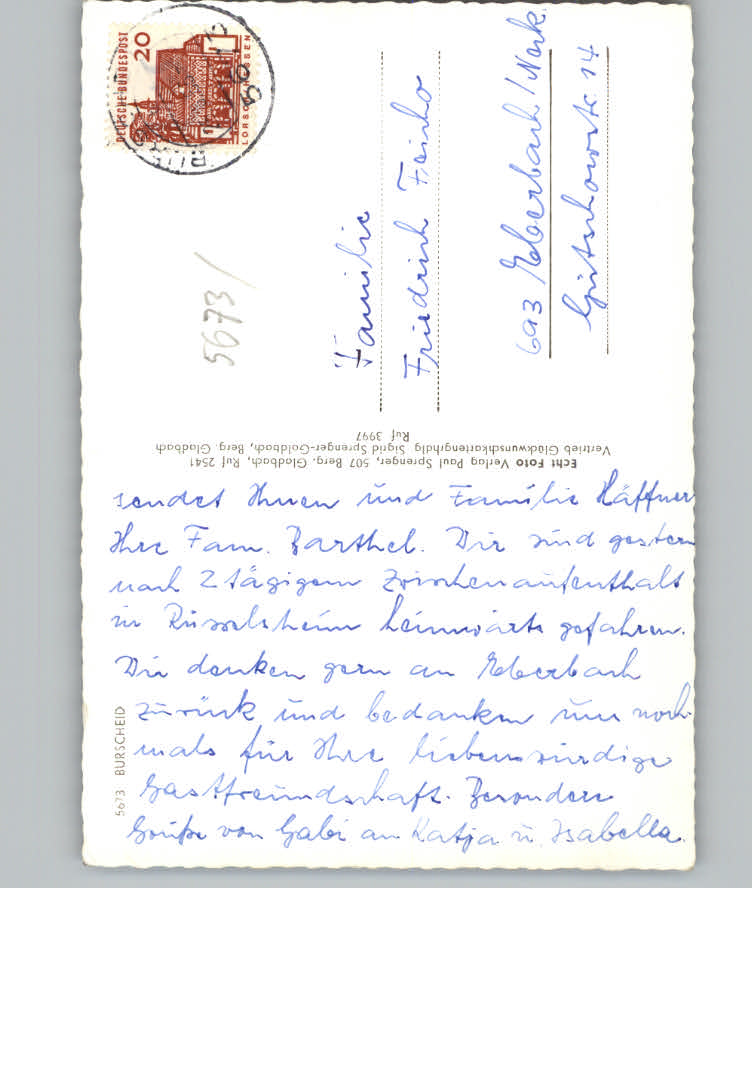 sendet Ihnen und Familie Häffner
Ihre Fam. Barthel. Wir sind gestern
nach 2tägigem Zwischenaufenthalt
in Rüsselsheim heimwärts gefahren.
Wir denken gern an Eberbach
zurück und bedanken uns noch-
mals für Ihre liebenswürdige
Gastfreundschaft. Besondere
Grüße von Gabi an Katja u. Isabella.
Familie
Friedrich
693 Eberbach/Neck.
14
5673/
DEUTSCHE BUNDESPOST
20
LORSCH HESSEN
Echt Foto Verlag Paul Sprenger, 507 Berg. Gladbach, Ruf 2541
Vertrieb Glückwunschkartengrhdlg. Sigrid Sprenger-Goldbach, Berg. Gladbach
Ruf 3997
5673 BURSCHEID